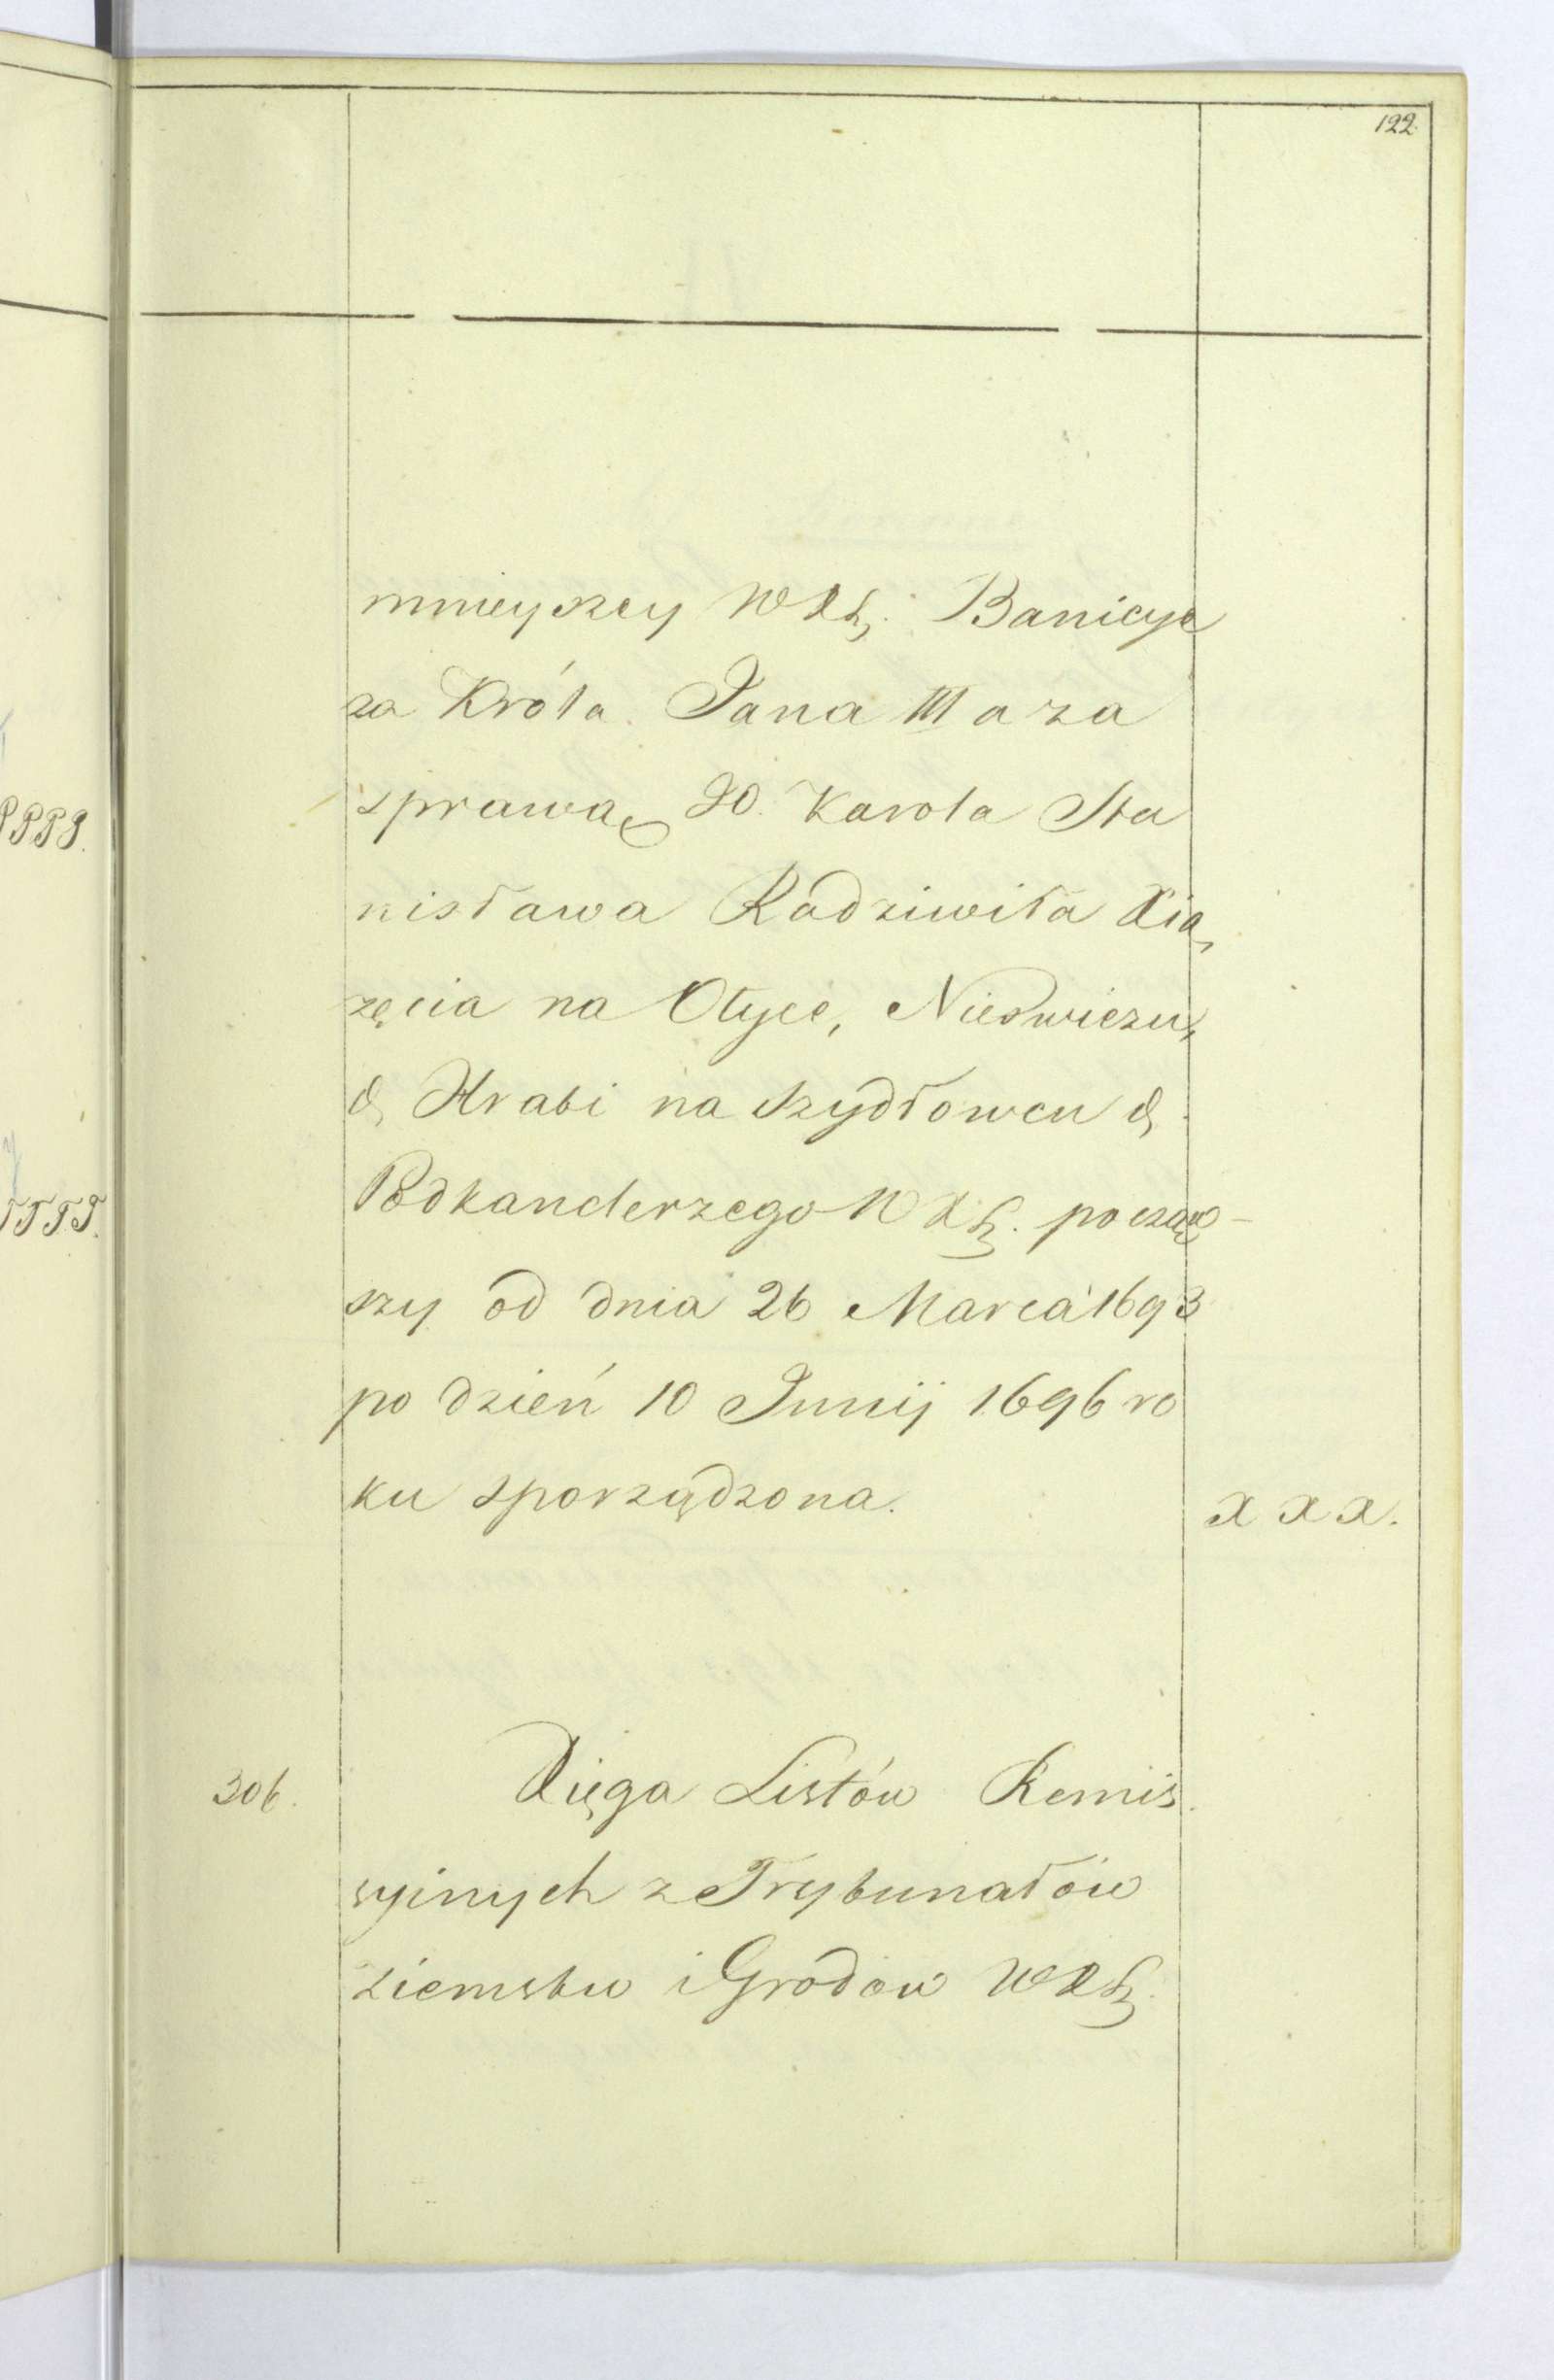 122.
mnieyszey WXL. Banicye
za Króla Jana III a za
sprawą JO. Karola Sta
nisława Radziwiła Xią
zęcia na Ołyce, Nieswiezu,
& Hrabi na Szydłowcu &
Podkanclerzego WXL. począw-
szy od dnia 26 Marca 1693
po dzień 10 Junij 1696 ro
ku sporządzona.
XXX.
306. Xięga Listów Remis
syinych z Trybunałów
Ziemstw i Grodów WXL.